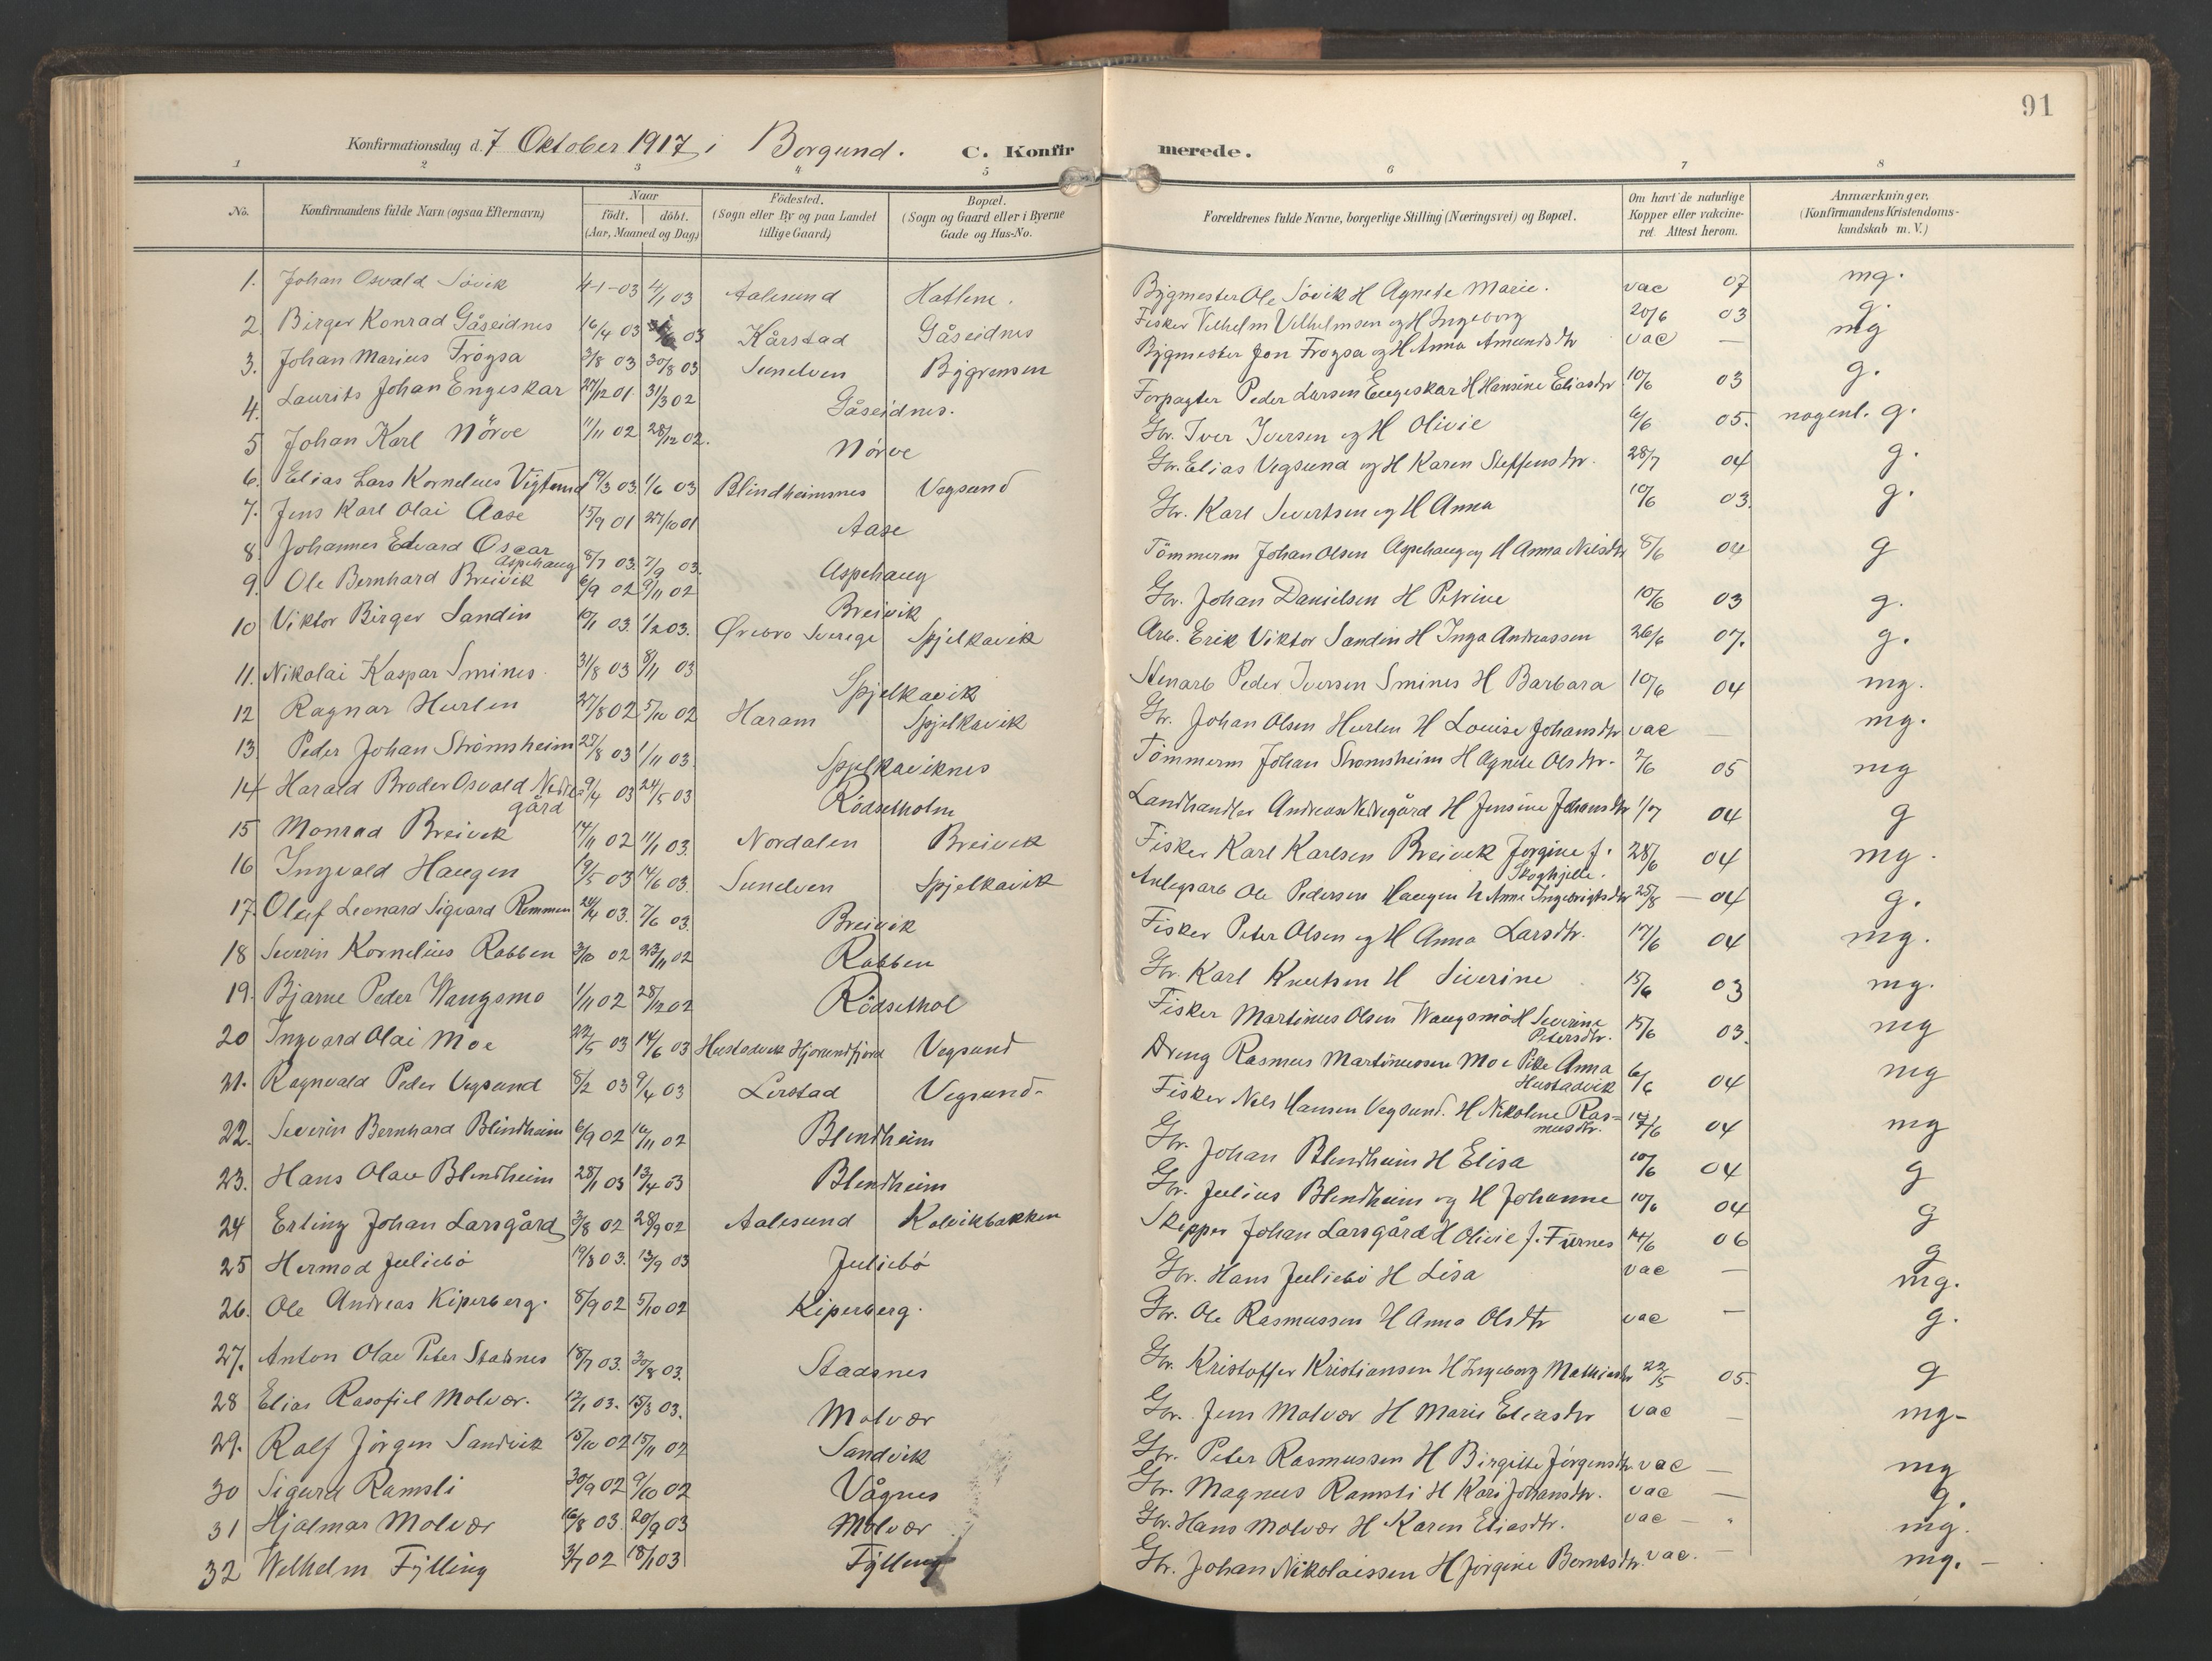 91
Konfirmationsdag d. 7 Oktober 1917 i Borgund. C. Konfirmerede.
1 2 3 4 5 6 7 8
No. Konfirmandens fulde Navn (ogsaa Efternavn) Naar födt. döbt. (Aar, Maaned og Dag) Födested. (Sogn eller By og paa Landet tillige Gaard) Bopæl. (Sogn og Gaard eller i Byerne Gade og Hus-No. Forældrenes fulde Navne, borgerlige Stilling (Næringsvei) og Bopæl. Om havt de naturlige Kopper eller vakcineret. Attest herom. Anmærkninger. (Konfirmandens Kristendomskundskab m. V.)
1. Johan Osvald Sövik 4-1-03 4/1 03 Aalesund Hatlene. Bygmester Ole Sövik H Agnete Marie. vac 07 mg.
2 Birger Konrad Gåseidnes 16/4 03 03 Kårstad Gåseidnes Fisker Vilhelm Vilhelmsen og H Ingeborg 20/6 03 g.
3. Johan Marius Frögsa 3/8 03 30/8 03 Sunelven Bygrensen Bygmester Jon Frögsa og H Anna Amundsdtr vac — mg
4. Laurits Johan Engeskar 27/12 01 31/3 02 Gåseidnes. Forpagter Peder Larsen Engeskar H Hansine Eliasdtr 10/6 03 g.
5 Johan Karl Nörve 11/11 02 28/12 02. Nörve Gbr. Iver Iversen og H Olivie 6/6 05. nogenl. g.
6. Elias Lars Kornelius Vigtund 19/3 03 1/6 03 Blindheimsnes Vegsund Gbr. Elias Vegsund og H Karen Steffensdtr. 28/7 04 g.
7. Jens Karl Olai Aase 15/9 01 27/10 01 Aase Gbr. Karl Sivertsen og H Anna 10/6 03. g.
8 Johannes Edvard Oscar Aspehaug 8/7 03. 7/9 03. Aspehaug Tömmerm Johan Olsen Aspehaug og H Anna Nilsdtr 8/6 04 g
9. Ole Bernhard Breivik 6/9 02 9/11 02 Breivik Gbr. Johan Danielsen H Petrine 10/6 03 g.
10 Viktor Birger Sandin 10/1 03. 1/2 03. Ørebro Sverege Spjelkavik Arb. Erik Viktor Sandin H Inga Andreassen 26/6 07. g.
11. Nikolai Kaspar Smines. 31/8 03 8/11 03 Spjelkavik Stenarb Peder Iversen Smines H Barbara 10/6 04 mg.
12 Ragnar Hurlen 27/8 02 5/10 02 Haram Spjelkavik Gbr. Johan Olsen Hurlen H Louise Johansdtr vac — mg.
13. Peder Johan Strömsheim 27/8 03 1/11 03. Spjelkaviknes Tömmerm Johan Stromsheim H Agnete Olsdtr. 7/6 05 mg
14 Harald Broder Osvald Nedregård 9/4 03 24/5 03 Rödsetholm Landhandler Andreas Nedregård H Jensine Johansdtr 1/7 04 g
15 Monrad Breivek 14/11 02 11/1 03. Nordalen Breivek Fisker Karl Karlsen Breivek Jorgine f. Skoghjelle. 28/6 04 mg.
16 Ingvald Haugen 19/5 03 14/6 03. Sunelven Spjelkavik Anlegsarb Ole Pedersen Haugen h Anne Ingebrigtsdtr 25/8 — 04 g.
17. Oluf Leonard Sigvard Remmen 20/4 03. 7/6 03. Breivik Fisker Peter Olsen og H Anna Larsdtr. 17/6 04 mg.
18 Severin Kornelius Rabben 3/10 02 23/11 02 Rabben Gbr. Karl Knutsen H Siverine 15/6 03 mg.
19. Bjarne Peder Waugsmo 1/11 02 28/12 02 Rödsethol Fisker Martinus Olsen Waugsmo H Severine Petersdtr. 15/6 03. mg
20 Ingvard Olai Moe 22/5 03 14/6 03 Hustadvik Hjorundfjord Vegsund Dreng Rasmus Martinussen Moe Pike Anna Hustadvik 6/6 04 mg
21. Ragnvald Peder Vegsund 8/2 03 9/4 03 Lerstad Vegsund- Fisker Nels Hansen Vegsund. H Nikoline Rasmusdtr. 17/6 04 mg
22. Severin Bernhard Blindheim 6/9 02 16/11 02 Blindheim Gbr. Johan Blendheim H Elisa 10/6 04 g
23. Hans Olav Blendheim 28/1 03 13/4 03 Blendheim Gbr. Julius Blendheim og H Johanne 10/6 04 g
24 Erling Johan Larsgård 3/8 02 28/9 02 Aalesund Kolvikbakken Skipper Johan Larsgård H Olivie f. Furnes 14/6 06 g
25 Hermod Juliebö 19/8 03. 13/9 03 Juliebö Gbr. Hans Juliebö H Lisa vac — mg.
26. Ole Andreas Kiperberg. 8/9 02 5/10 02 Kiperberg. Gbr. Ole Rasmussen H Anna Olsdtr vac — g.
27. Anton Olav Peter Stadsnes 18/7 03. 30/8 03. Stadsnes Gbr. Kristoffer Kristiansen H Ingeborg Mathiasdtr 22/5 05. g
28 Elias Rasofiel Molvær. 12/1 03. 15/3 03. Molvær Gbr. Jens Molvær H Marie Eliasdtr vac — mg-
29. Rolf Jörgen Sandvik 15/10 02 15/11 02 Sandvik Gbr. Peter Rasmussen H Birgitte Jörgensdtr. vac — mg
30 Sigurd Ramsli 30/9 02 9/10 02 Vågnes Gbr. Magnus Ramsli H Kari Johansdtr. vac — g.
31 Hjalmar Molvær 16/8 03. 20/9 03 Molvær Gbr. Hans Molvær H Karen Eliasdtr. vac — " mg.
32 Wilhelm Fylling 3/7 02 18/1 03 Fylling Gbr. Johan Nikolaissen H Jörgine Berntsdtr. vac. — mg. —